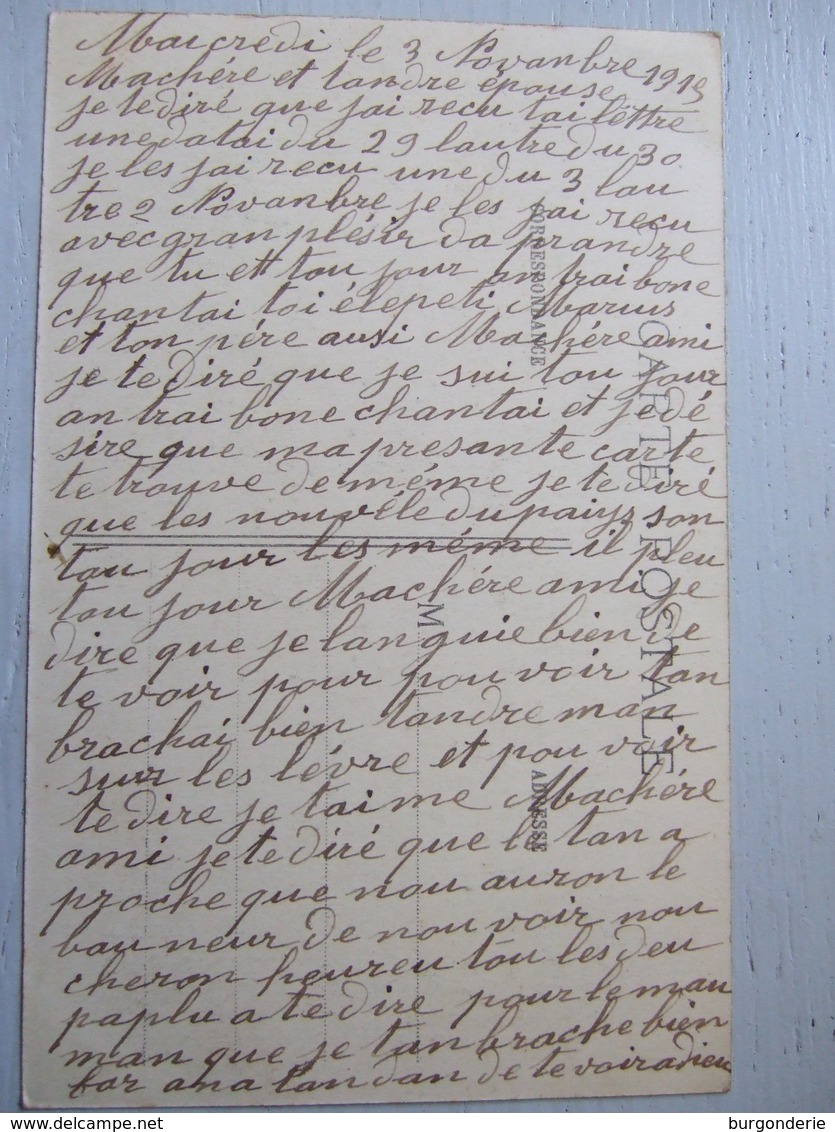 Marcredi le 3 Novanbre 1915
Machére et tandre épouse
je te diré que jai recu tai lettre
une datai du 29 lautre du 30
je les jai recu une du 3 lau
tre 2 Novanbre je les jai recu
avec gran plésir da prandre
que tu et tou jour an trai bone
chantai toi é le peti Marius
et ton pére ausi Machére ami
je te diré que je sui tou jour
an trai bone chantai et je dé
sire que ma presante carte
te trouve de méme je te diré
que les nouvéle du pays son
tou jour les méme il pleu
tou jour Machére ami je
dire que je languie bien de
te voir pour pou voir tan
brachai bien tandre man
surr les lévre et pou voir
te dire je taime Machére
ami je te diré que le tan a
proche que nou auron le
bau neur de nou voir nou
cheron heureu tou les deu
pa plu a te dire pour le mau
man que je tan brache bien
for an a tan dan de te voir adieu
CARTE POSTALE
CORRESPONDANCE
ADRESSE
M
burgonderie